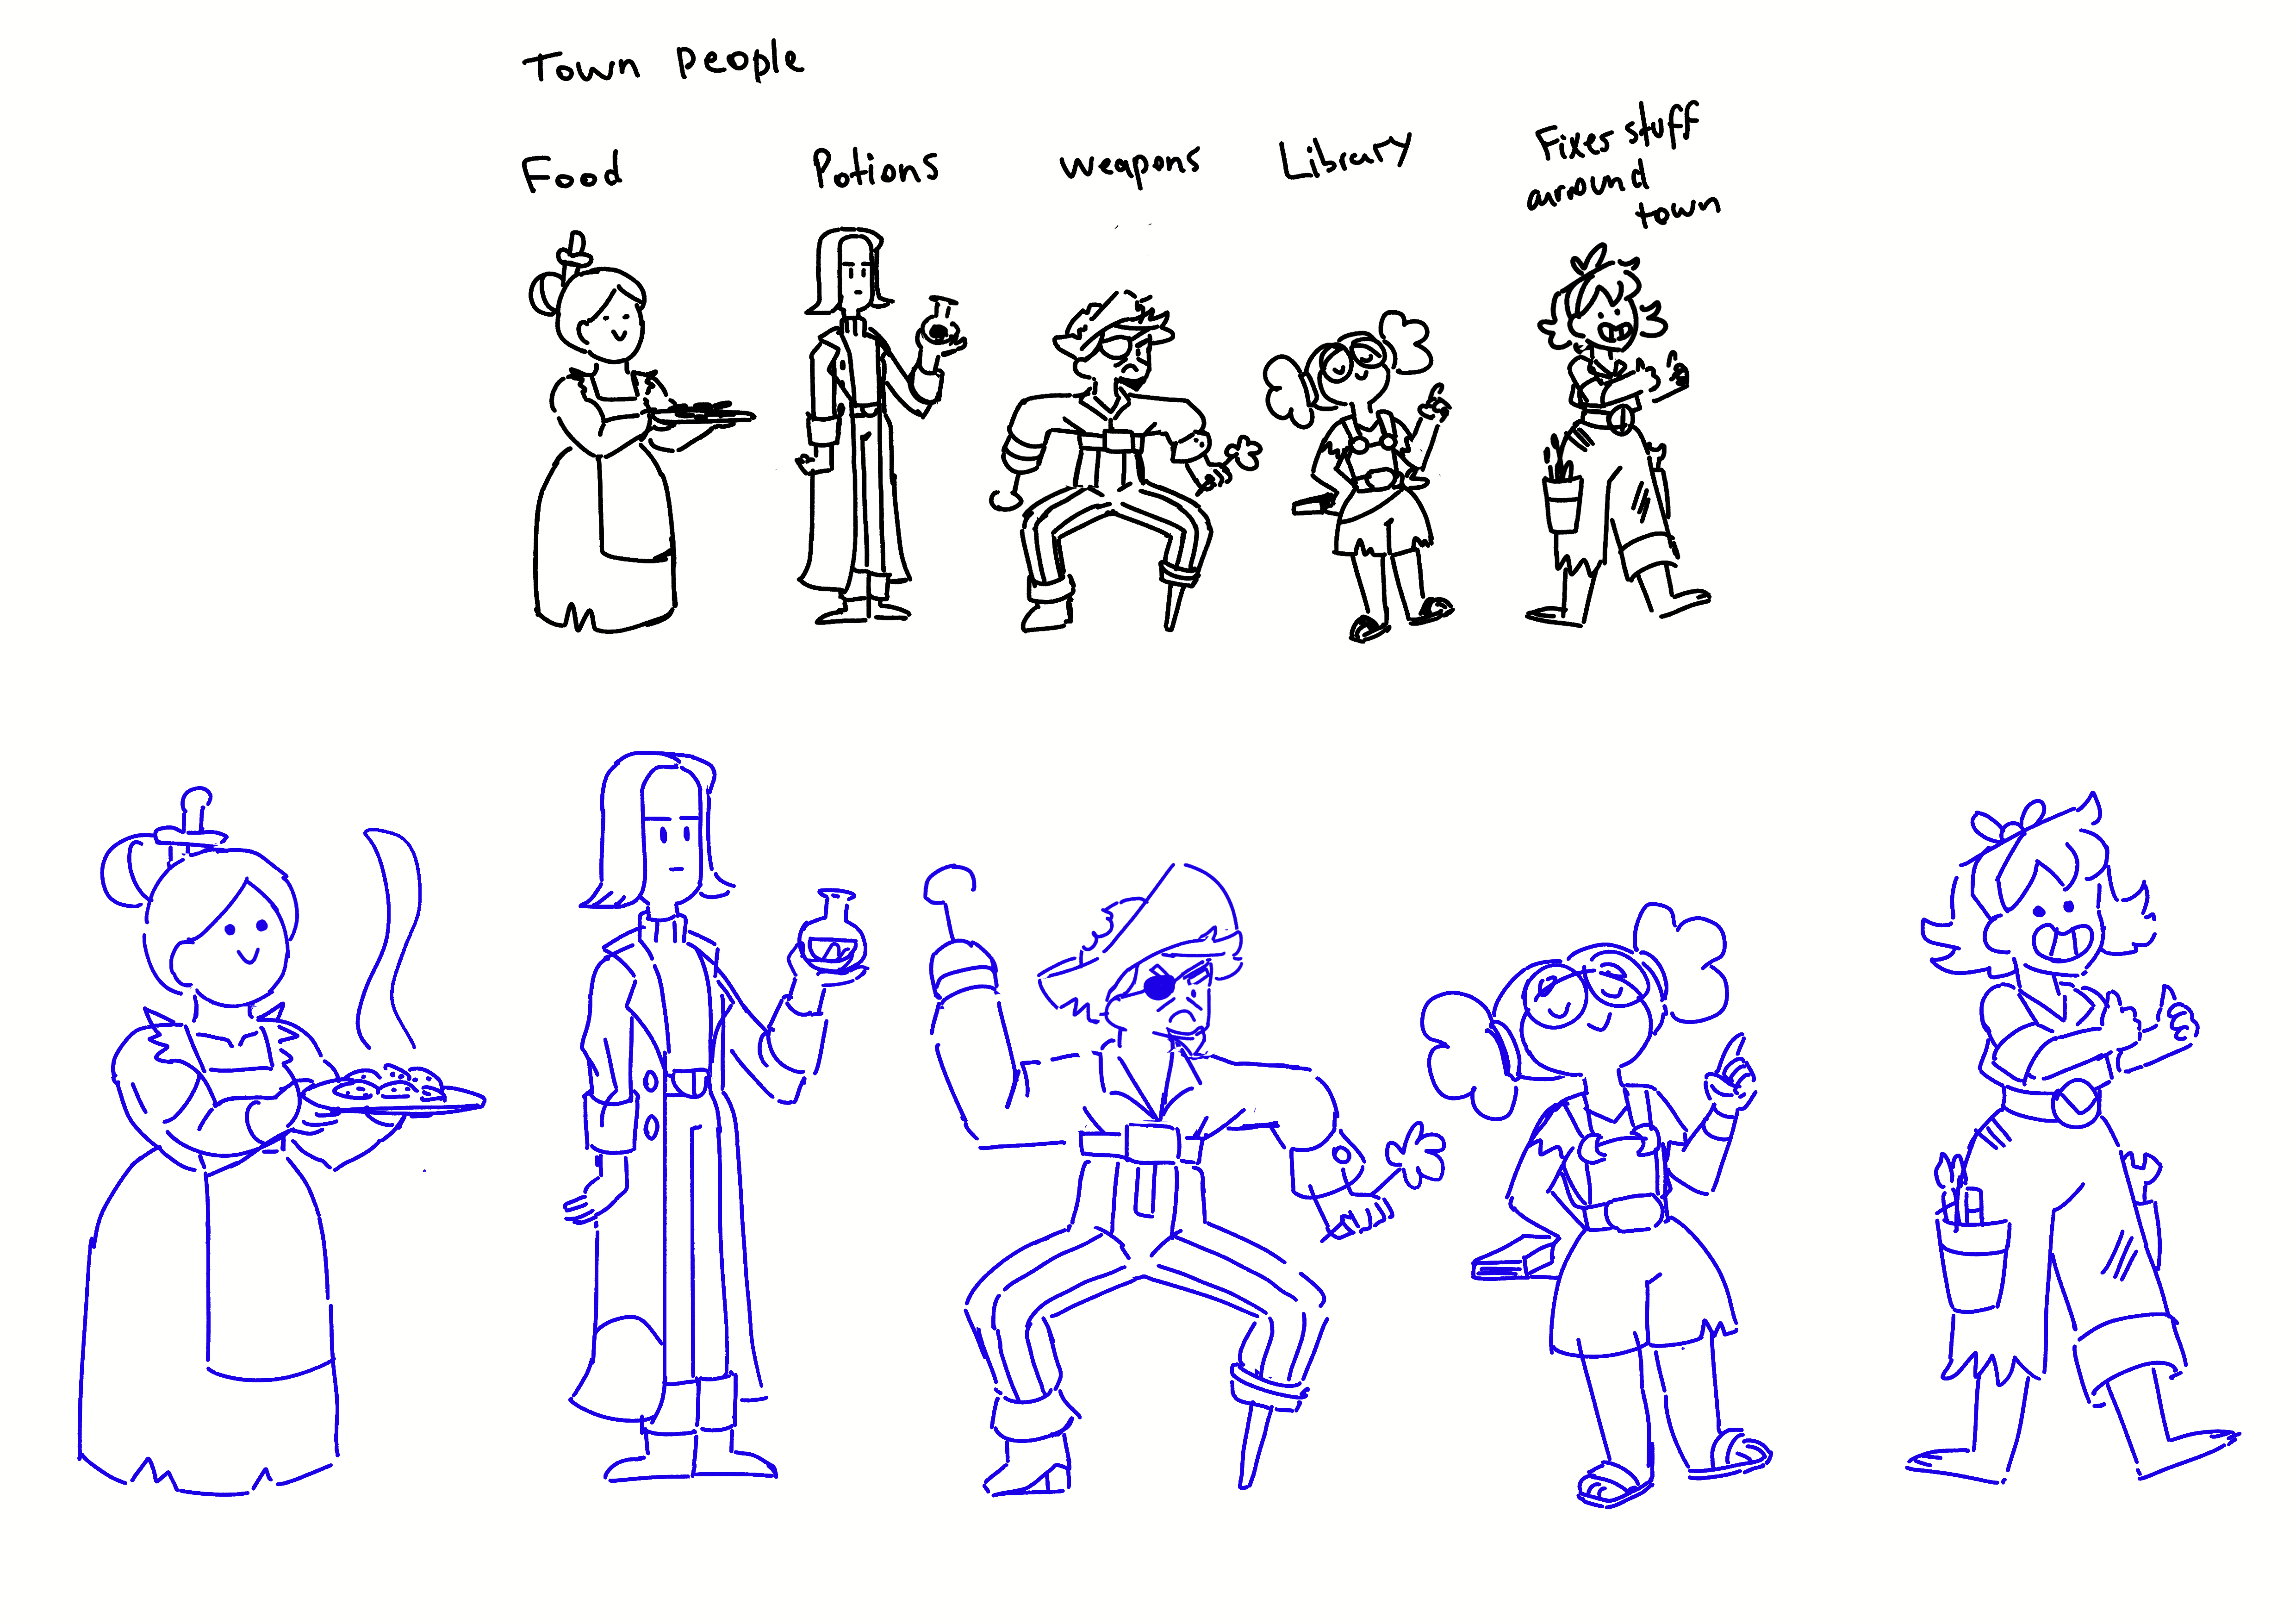 Town People
Food
Potions
weapons
Library
Fixes stuff
arround
town